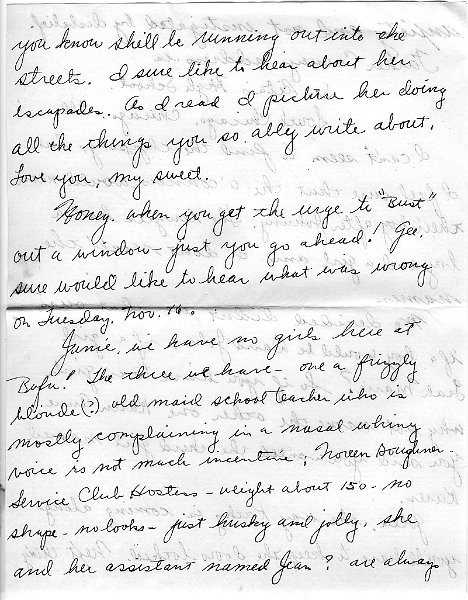 you know she'll be running out into the
streets. I sure like to hear about her
escapades. As I read I picture her doing
all the things you so ably write about.
Love you, my sweet.
Honey, when you get the urge to "Bust"
out a window - just you go ahead! Gee,
sure would like to hear what was wrong
on Tuesday. Nov. 16.
Junie, we have no girls here at
The three we have - one a frizzly
blonde(?) old maid school teacher who is
mostly complaining in a nasal whiny
voice is not much incentive; Noreen
Service Club Hostess - weight about 150 - no
shape - no looks - just husky and jolly, she
and her assistant named Jean? are always